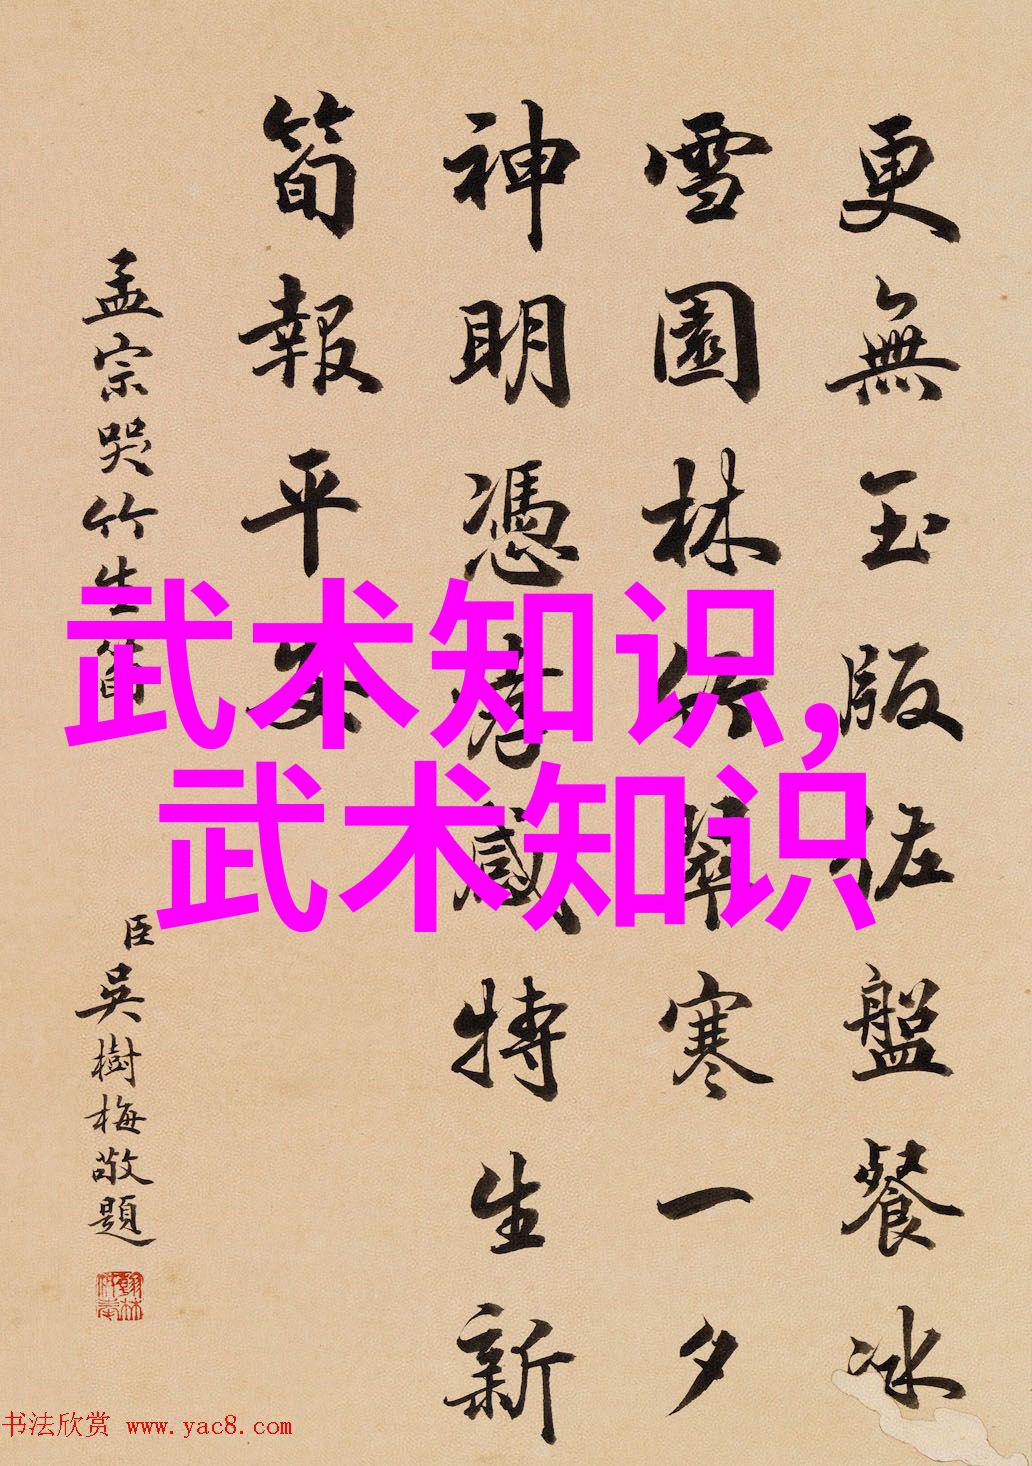 更無玉版佐盤餐冰
雪園林竹翠寒一夕
神明憑孝感特生新
筍報平安
孟宗哭竹生筍
臣吳樹梅敬題
武术知识,
武术知识
书法欣赏 www.yac8.com